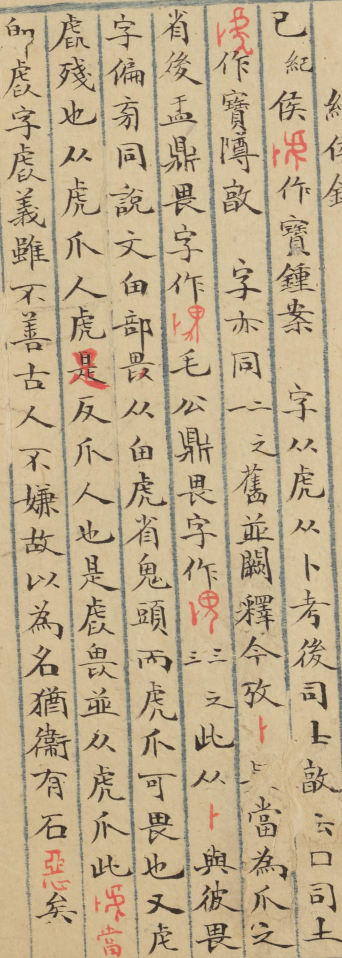 紀侯鐘
己紀侯作寶鍾案 字从虎从卜考後司土敦云口司土
作寶障敦 字亦同一二之舊並闕釋今攷卜當為爪之
省後盂鼎畏字作毛公鼎畏字作三三之此从卜與彼畏
字偏旁同說文甶部畏从甶虎省鬼頭而虎爪可畏也又虍
虐殘也从虎爪人虎是反爪人也是虐畏並从虎爪此當
即虐字虐義雖不善古人不嫌故以為名猶衞有石惡矣